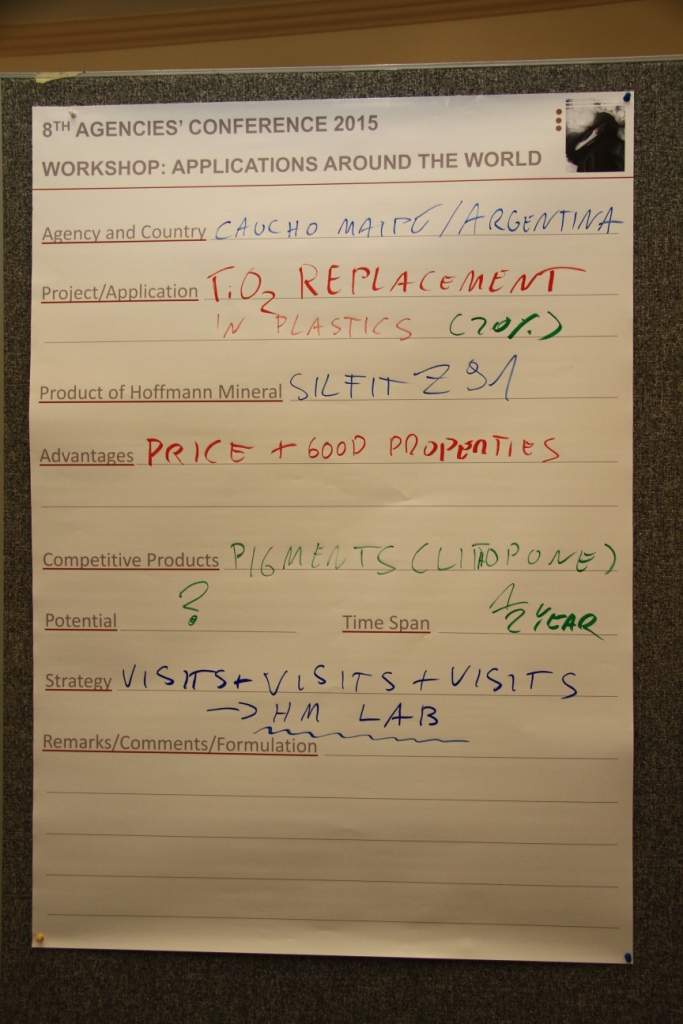 8TH AGENCIES' CONFERENCE 2015
WORKSHOP: APPLICATIONS AROUND THE WORLD
Agency and Country CAUCHO MAIPÚ/ARGENTINA
Project/Application TiO2 REPLACEMENT
IN PLASTICS (20%)
Product of Hoffmann Mineral SILFIT Z 91
Advantages PRICE + GOOD PROPERTIES
Competitive Products PIGMENTS (LITHOPONE)
Potential ? Time Span 1/2 YEAR
Strategy VISITS + VISITS + VISITS
→ HM LAB
Remarks/Comments/Formulation